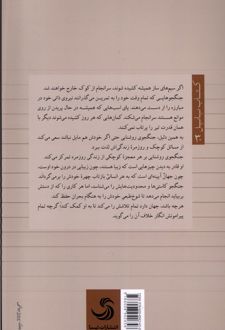 اگر سیم‌های ساز همیشه کشیده شوند، سرانجام از کوک خارج خواهند شد.
جنگجوهایی که تمام وقت خود را به تمرین می‌گذرانند نیروی ذاتی خود در
مبارزه را از دست می‌دهند. پای اسب‌هایی که همیشه در حال پریدن از روی
موانع هستند، سرانجام می‌شکند. کمان‌هایی که هر روز کشیده می‌شوند دیگر با
همان قدرت تیر را پرتاب نمی‌کنند.
به همین دلیل، جنگجوی روشنایی حتی اگر خودش هم مایل نباشد سعی می‌کند
از مسائل کوچک و روزمرهٔ زندگی‌اش لذت ببرد.
جنگجوی روشنایی بر هر معجزهٔ کوچکی از زندگی روزمره تمرکز می‌کند.
او قادر به دیدن چیزهایی است که زیبا هستند، چون زیبایی در درون خود اوست،
چون جهان آینه‌ای است که به هر انسانی بازتاب چهرهٔ خودش را برمی‌گرداند.
جنگجو کاستی‌ها و محدودیت‌هایش را می‌شناسد، اما هر کاری را که از دستش
برمی‌آید انجام می‌دهد تا شوخ‌طبعی خودش را به هنگام بحران حفظ کند.
هرچه باشد، جهان دارد تمام تلاشش را می‌کند تا به او کمک کند؛ گرچه تمام
پیرامونش انگار خلاف آن را می‌گوید.